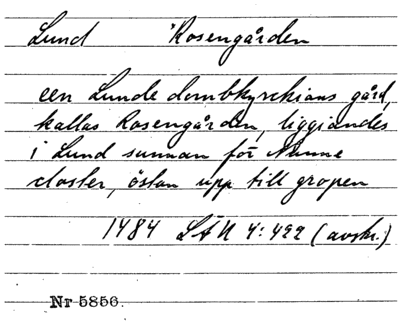 Lund Rosengården
een Lunde dombkyrchians gård,
kallas Rosengården, liggiandes
i Lund sunnan för Nunne
closter, östan upp till gropen
1484 LÄU 4:492 (avskr.)
Nr 5856.